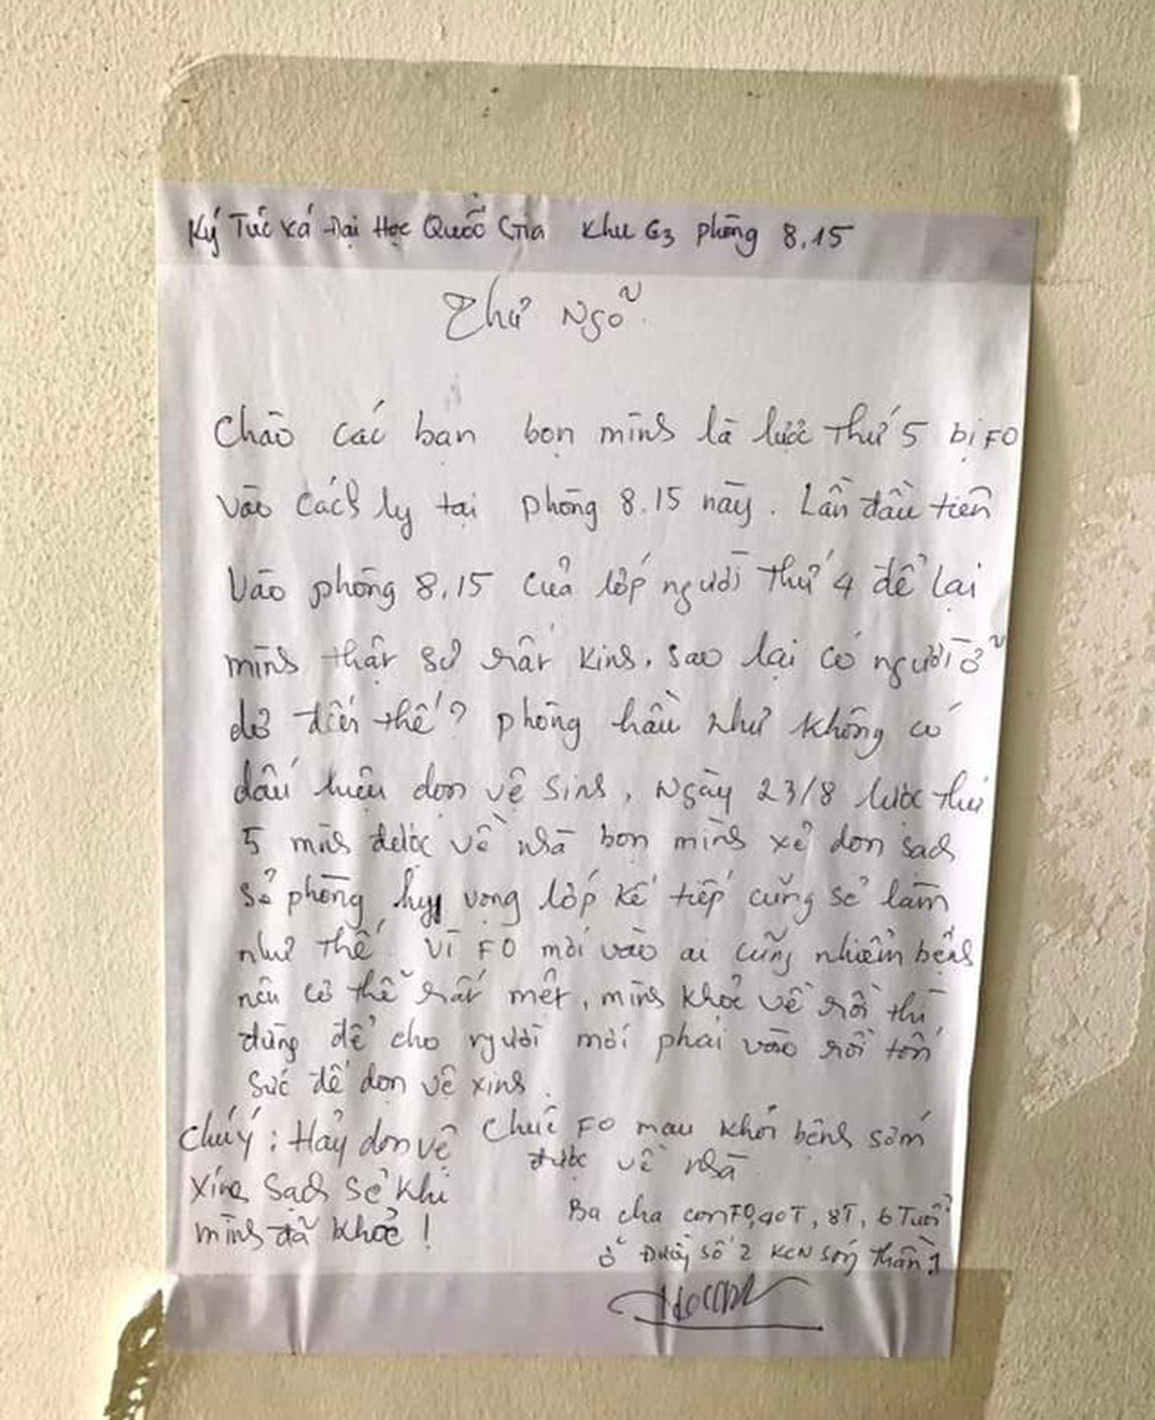 Ký Túc xá Đại Học Quốc Gia Khu G3 phòng 8.15
Thư Ngõ
Chào các bạn bọn mình là lược thứ 5 bị F0
vào cách ly tại phòng 8.15 này. Lần đầu tiên
vào phòng 8.15 của lớp người thứ 4 để lại
mình thật sự rất kinh. sao lại có người ở
dơ đến thế? phòng hầu như không có
dấu hiệu dọn vệ sinh, Ngày 23/8 lược thứ
5 mình được về nhà bọn mình xẻ dọn sạch
sẻ phòng hy vọng lớp kế tiếp cũng sẻ làm
như thế. Vì F0 mới vào ai cũng nhiểm bệnh
nên có thể rất mệt, mình khỏe về rồi thì
đừng để cho người mới phải vào rồi tốn
sức để dọn vệ xinh.
Chúý: Hảy dọn vệ
xinh sạch sẻ khi
mình đã khỏe!
Chúc F0 mau khỏi bệnh sớm
được về nhà
Ba cha con F0, 40T, 8T, 6 Tuổi
ở Đường số 2 KCN Sóng Thần 1